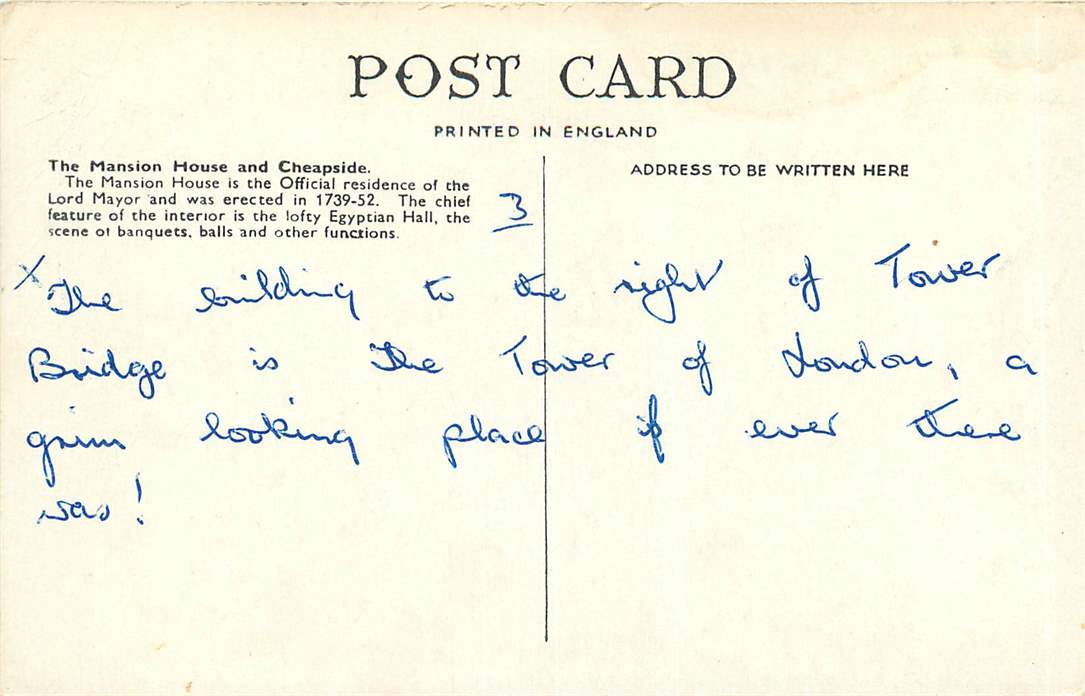 POST CARD
PRINTED IN ENGLAND
The Mansion House and Cheapside.
The Mansion House is the Official residence of the
Lord Mayor and was erected in 1739-52. The chief
feature of the interior is the lofty Egyptian Hall, the
scene of banquets, balls and other functions.
ADDRESS TO BE WRITTEN HERE
3
X The building to the right of Tower
Bridge is the Tower of London, a
grim looking place if ever there
was!